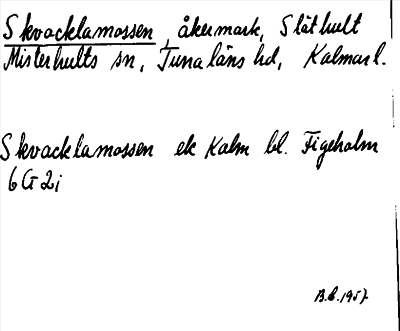 Skvacklamossen, åkermark, Släthult
Misterhults sn, Tunaläns hd, Kalmar l.
Skvacklamossen ek Kalm bl. Figeholm
6G2i
B.E.1957